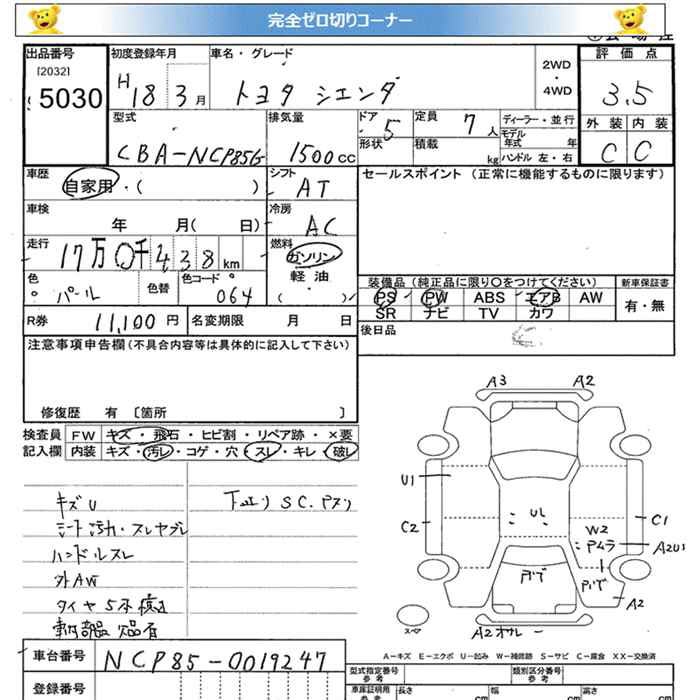 完全ゼロ切りコーナー
出品番号 初度登録年月 車名・グレード 評価点
[2032]
5030 H 18 3月 トヨタ シエンタ 2WD ・ 4WD 3.5
型式 排気量 ドア 5 定員 7人 ディーラー・並行 外装 内装
CBA-NCP85G 1500cc 形状 積載 kg モデル年式 年 C C
ハンドル 左・右
車歴 自家用・( ) シフト AT セールスポイント (正常に機能するものに限ります)
車検 年 月( 日) 冷房 AC
走行 17万0千438km 燃料 ガソリン
軽油
( )
色 パール 色替 色コード 064
装備品 (純正品に限り○をつけてください) 新車保証書
PS PW ABS エアB AW 有・無
SR ナビ TV カワ
R券 11,100円 名変期限 月 日 後日品
注意事項申告欄(不具合内容等は具体的に記入して下さい)
修復歴 有 [箇所 ]
検査員 FW キズ・飛石・ヒビ割・リペア跡・×要
記入欄 内装 キズ・汚レ・コゲ・穴・スレ・キレ・破レ
キズU 下廻り SC.
ハンドルスレ
外AW
タイヤ
A3 A2
U1
C2 C1
W2
A2U1
A2
A2
スペア
A-キズ E-エクボ U-凹み W-補修跡 S-サビ C-腐食 XX-交換済
車台番号 NCP85-0019247
登録番号
型式指定番号 参考 類別区分番号 参考
車庫証明用 参考 長さ cm 幅 cm 高さ cm